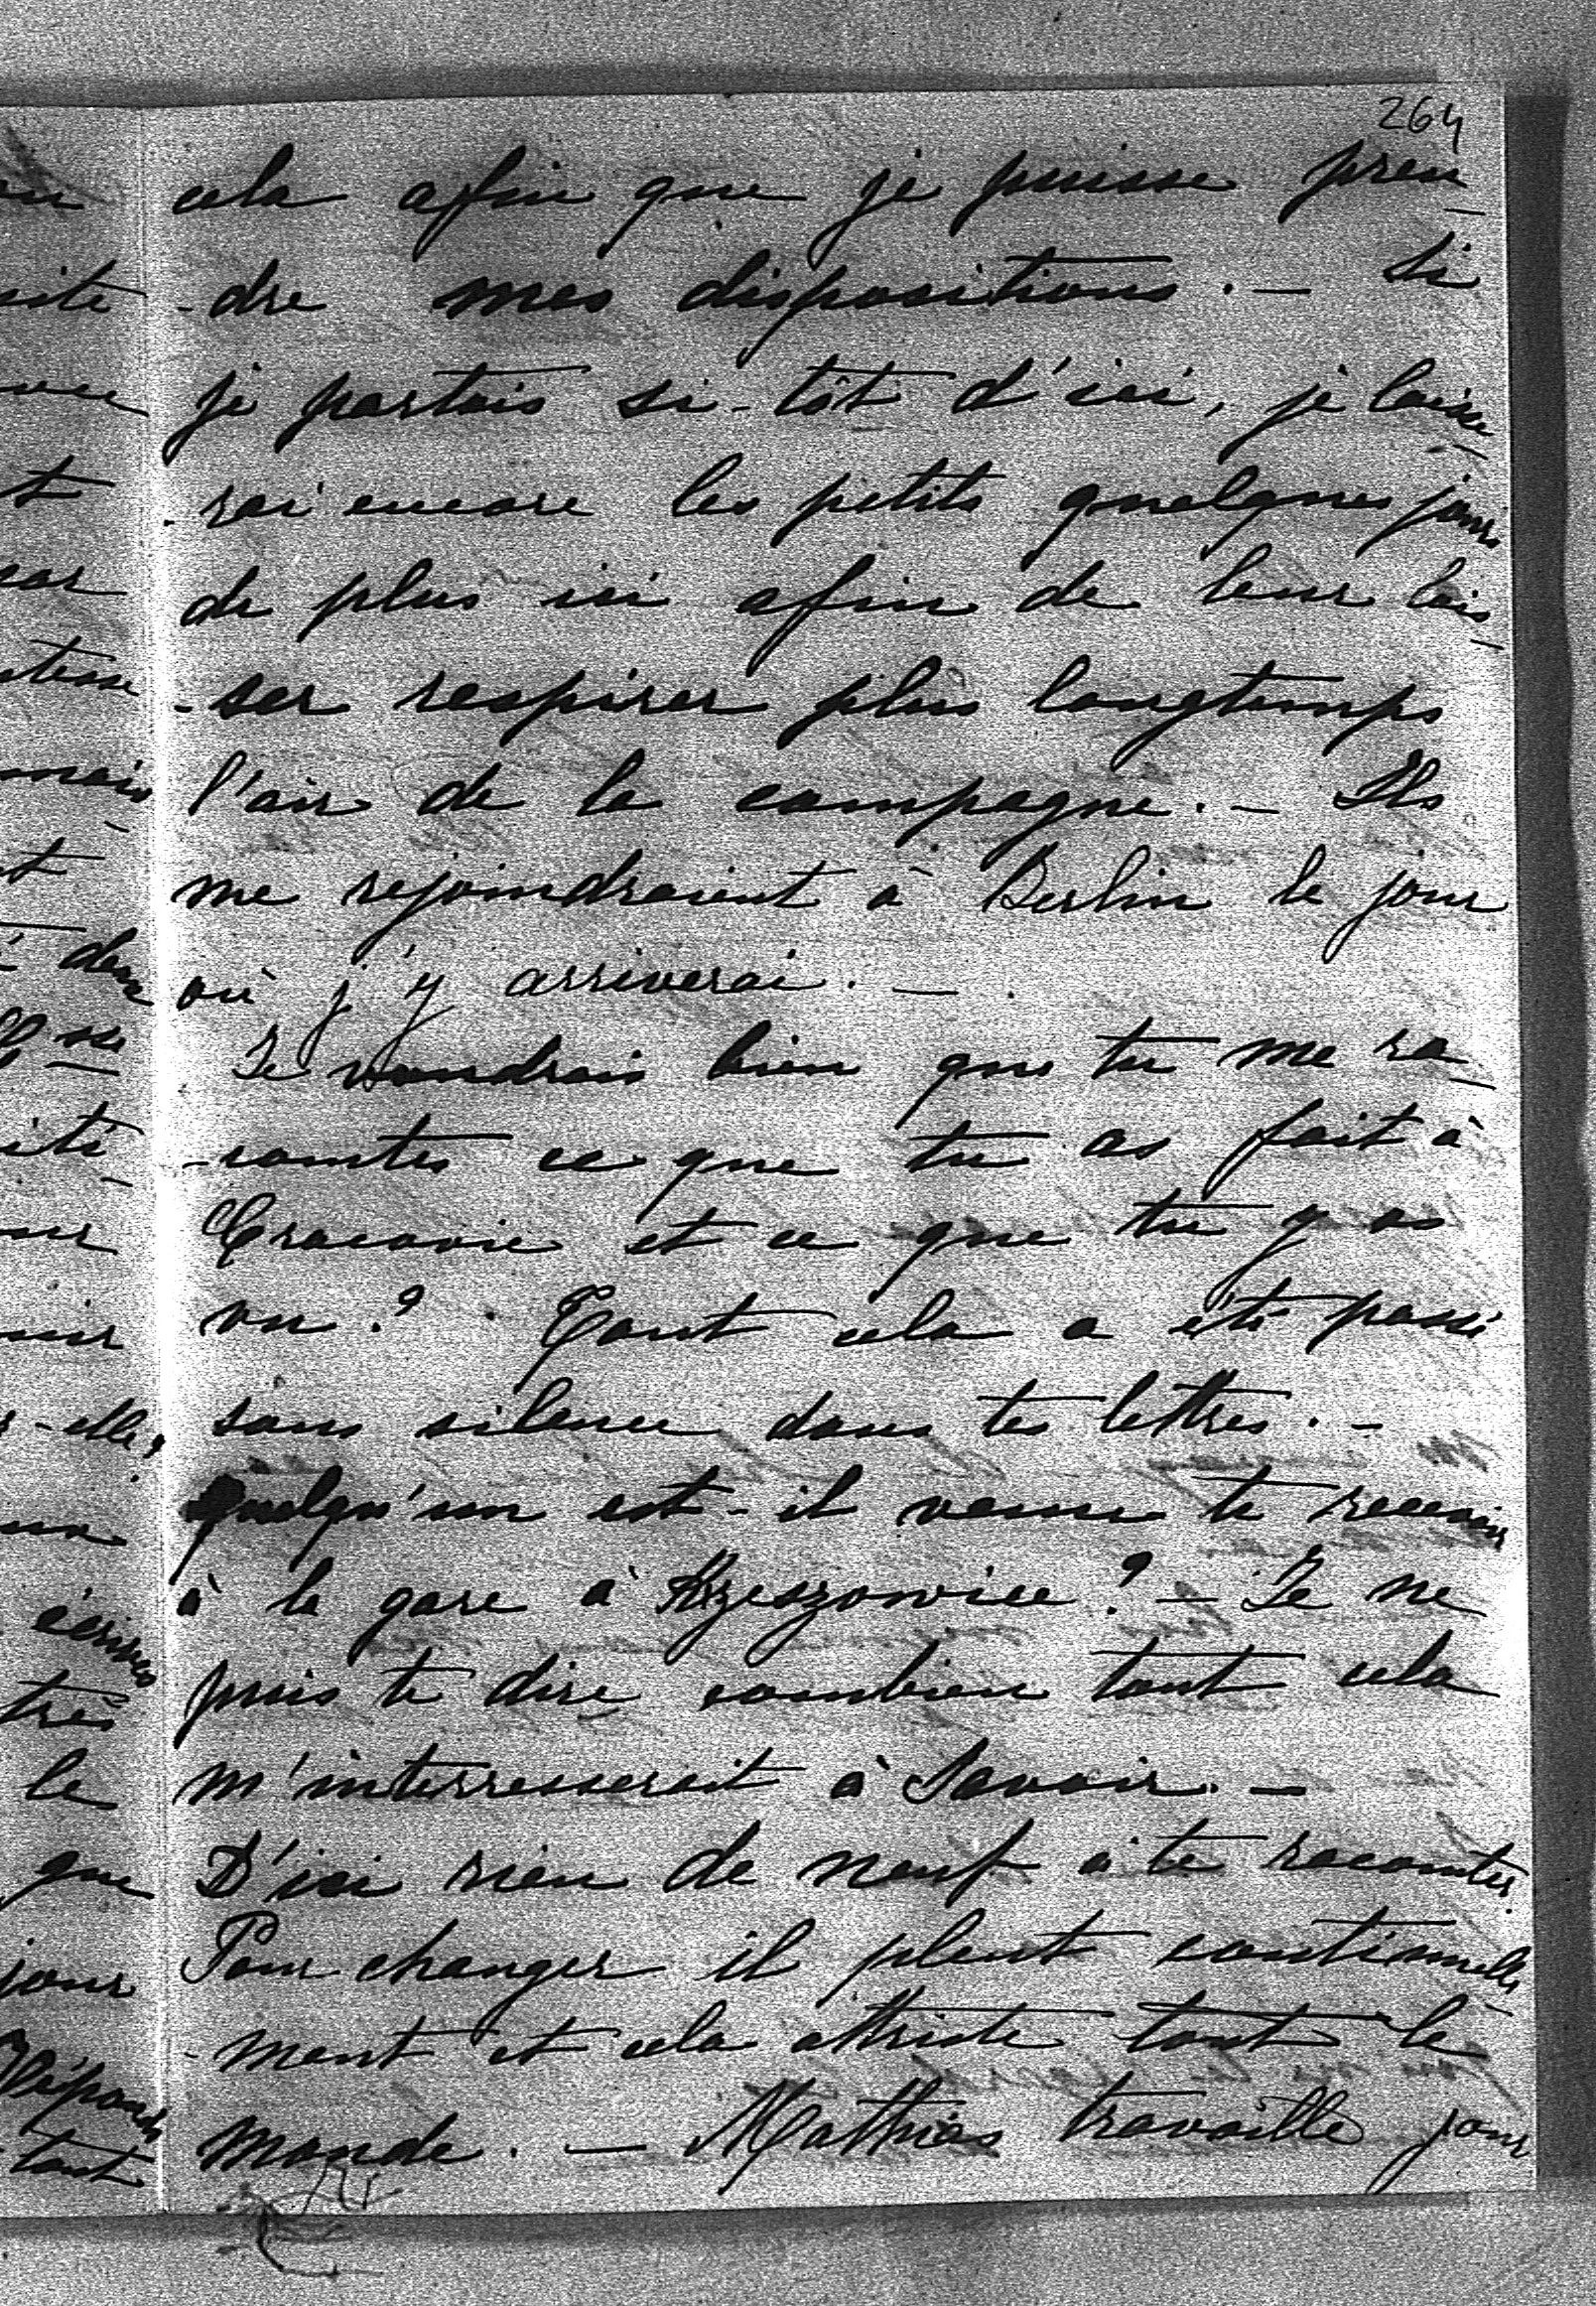 264
cela afin que je puisse pren-
-dre mes dispositions. — Si
je partais si-tôt d'ici, je laisse-
-rai encore les petits quelques jours
de plus ici afin de leur lais-
-ser respirer plus longtemps
l'air de la campagne. — Ils
me rejoindraient à Berlin le jour
où j'y arriverai. —
Je voudrais bien que tu me ra-
-contes ce que tu as fait à
Cracovie et ce que tu y as
vu? Tout cela a été passé
sous silence dans tes lettres. —
Quelqu'un est-il venu te recevoir
à la gare à Krzeszowice? — Je ne
puis te dire combien tout cela
m'interresserait à savoir. —
D'ici rien de neuf à te raconter.
Pour changer il pleut continuelle-
-ment et cela attriste tout le
monde. — Mathias travaille jour